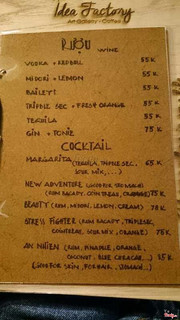 Idea Factory
Art Gallery - Coffee
RƯỢU WINE
VODKA + REDBULL 55K
MIDORI + LEMON 55K
BAILEYS 55K
TRIPPLE SEC + FRESH ORANGE 55K
TEQUILA 55K
GIN + TONIC 75K
COCKTAIL
MARGARITA (TEQUILA, TRIPPLE SEC, 65K
SOUR MIX, ...)
NEW ADVENTURE (GOOD FOR
(RUM BACADY, COINTREAU, ORANGE) 75K
BEAUTY (RUM, MIDORI, LEMON, CREAM) 78K
STREET FIGHTER (RUM BACADY, TRIPLESEC,
COINTREAU, SOUR MIX, ORANGE) 75K
AN NHIÊN (RUM, ORANGE,
COCONUT, BLUE CORACAO...)
(GOOD FOR SKIN, FOR HAIR,